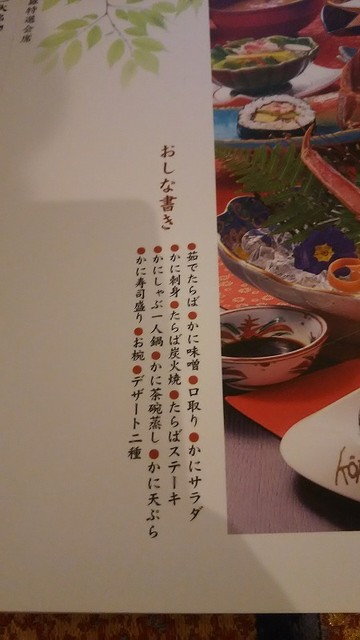 おしな書き
●茹でたらば●かに味噌●口取り●かにサラダ
●かに刺身●たらば炭火焼●たらばステーキ
●かにしゃぶ一人鍋●かに茶碗蒸し●かに天ぷら
●かに寿司盛り●お椀●デザート二種
特選会席